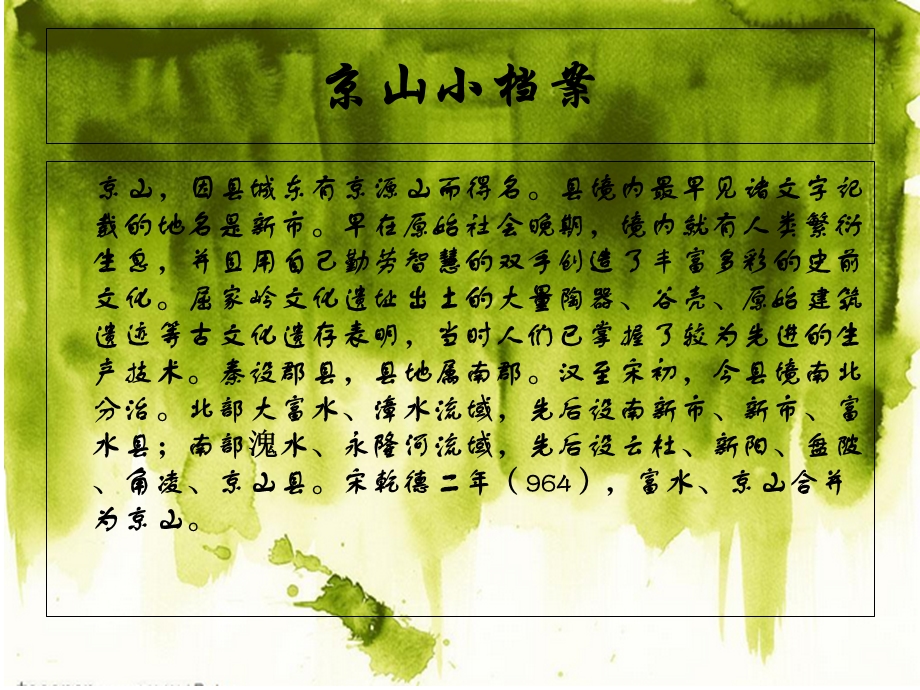 京山小档案
京山，因县城东有京源山而得名。县境内最早见诸文字记
载的地名是新市。早在原始社会晚期，境内就有人类繁衍
生息，并且用自己勤劳智慧的双手创造了丰富多彩的史前
文化。屈家岭文化遗址出土的大量陶器、谷壳、原始建筑
遗迹等古文化遗存表明，当时人们已掌握了较为先进的生
产技术。秦设郡县，县地属南郡。汉至宋初，今县境南北
分治。北部大富水、漳水流域，先后设南新市、新市、富
水县；南部溾水、永隆河流域，先后设云杜、新阳、盘陂
、角凌、京山县。宋乾德二年（964），富水、京山合并
为京山。